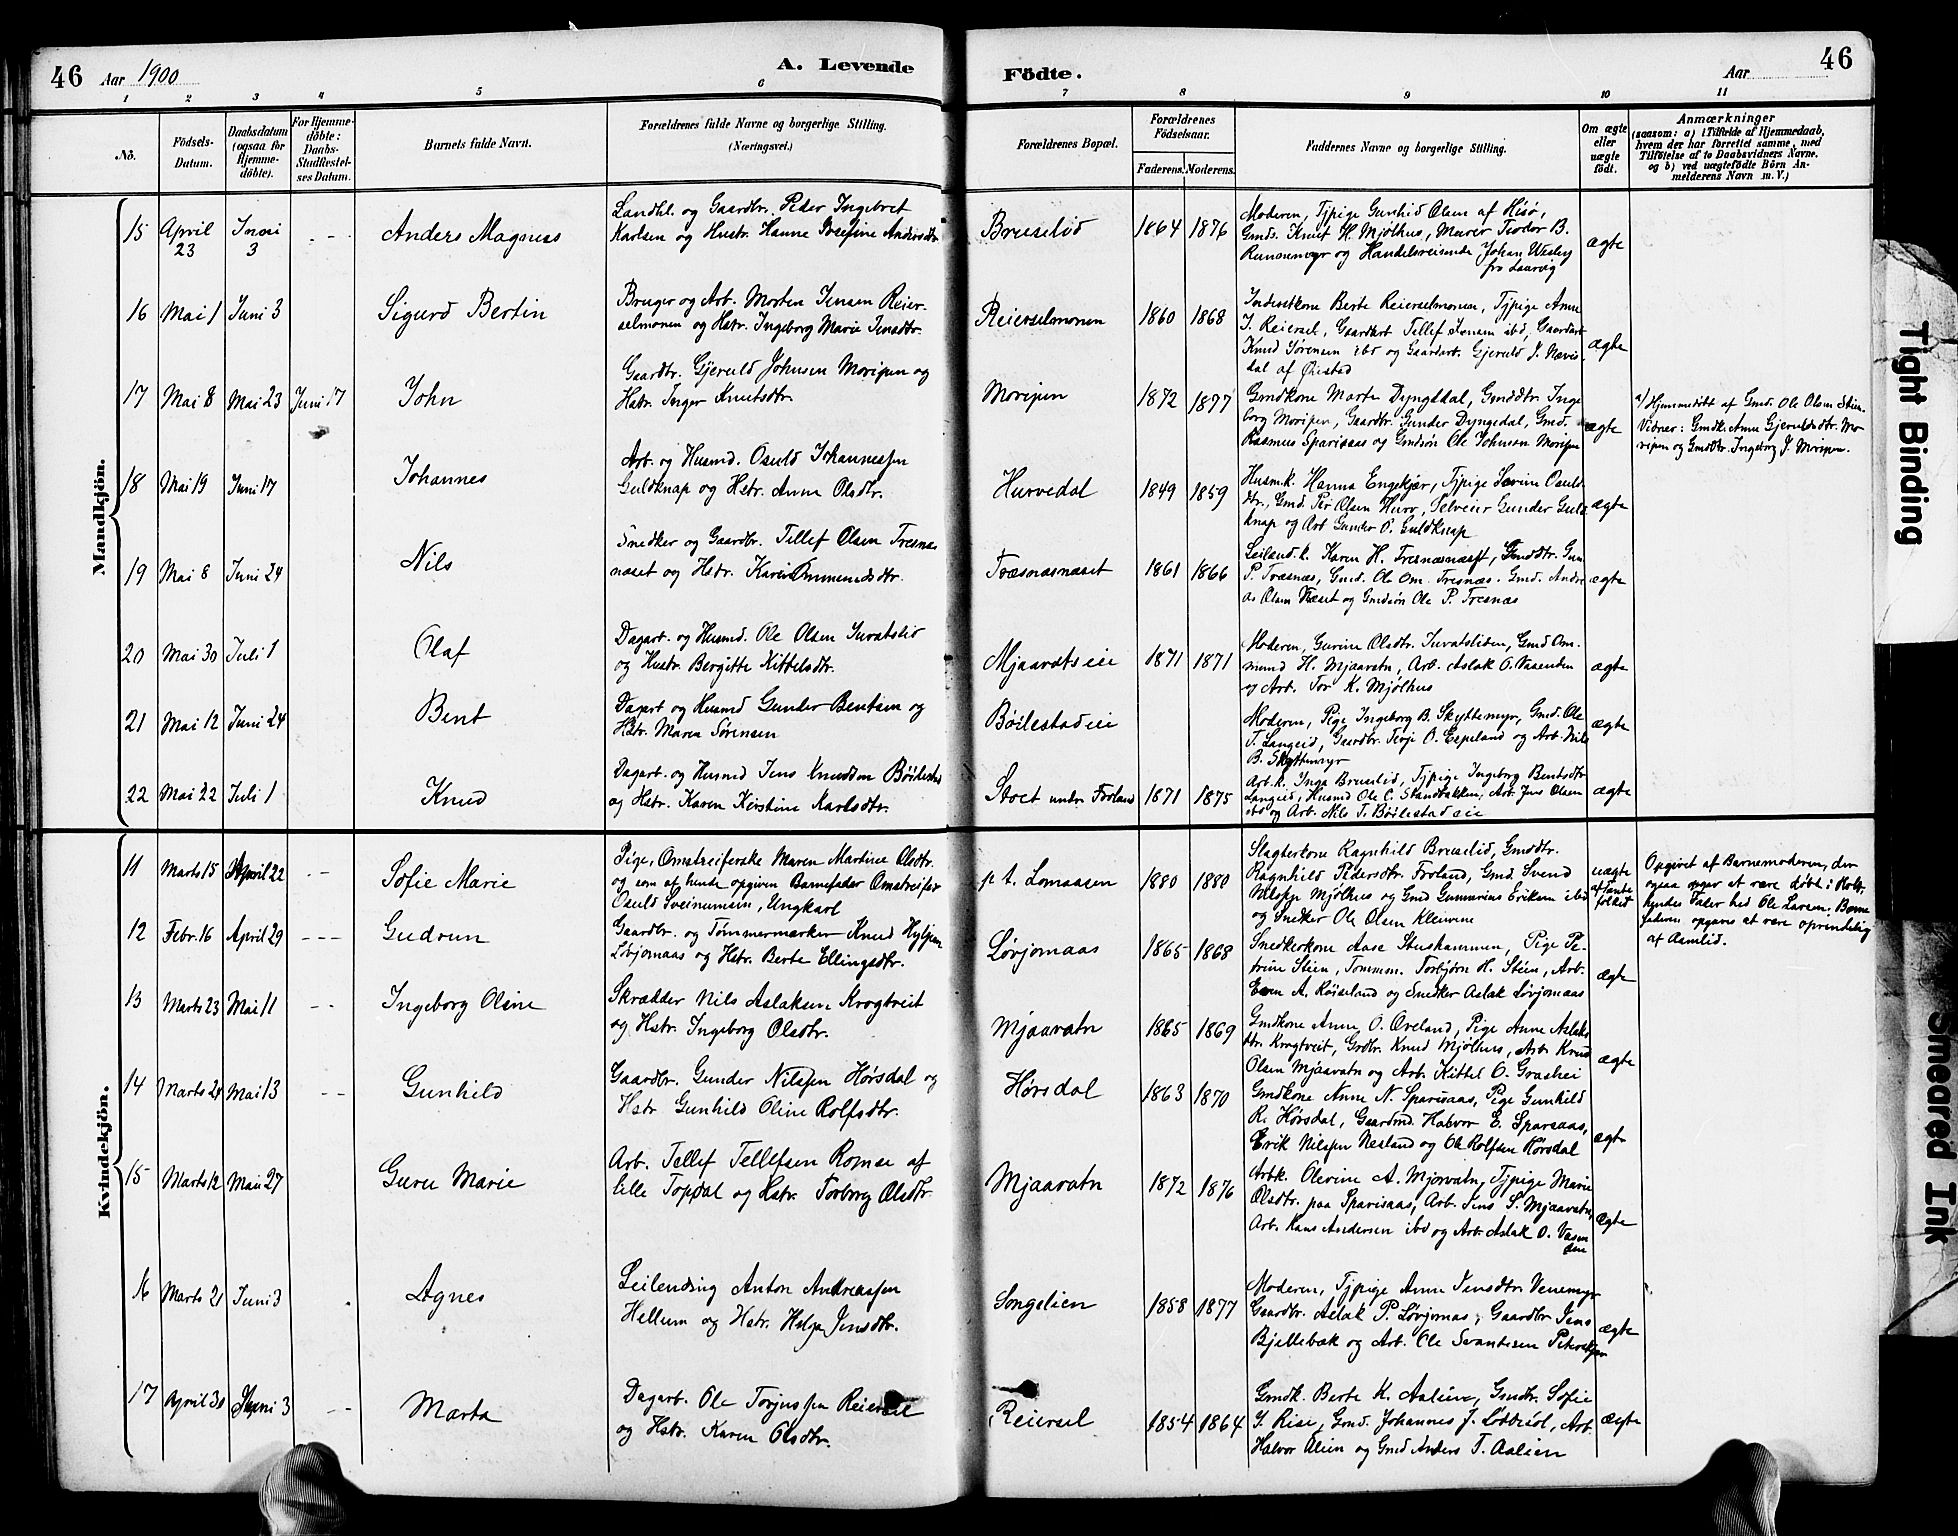 46 Aar 1900 A. Levende
Fødte. Aar 46
1 2 3 4 5 6 7 8 9 10 11
No.
Födsels-
Datum.
Daabsdatum
(ogsaa for
Hjemme-
döbte).
For Hjemme-
döbte:
Daabs-
Stadfæstel-
ses Datum.
Barnets fulde Navn.
Forældrenes fulde Navne og borgerlige Stilling.
(Næringsvei.)
Forældrenes Bopæl.
Forældrenes
Födselsaar.
Faderens. Moderens.
Faddernes Navne og borgerlige Stilling.
Om ægte
eller
uægte
födt.
Anmærkninger
(saasom: a) i Tilfælde af Hjemmedaab,
hvem der har forrettet samme, med
Tilföielse af to Daabsvidners Navne.
og b) ved uægtefödte Börn An-
melderens Navn m. V.)
Mandkjön.
15 April 23 Juni 3 Anders Magnus
Landhl. og Gaardbr. Peder Ingebret
Karlsen og Hustr. Hanne Josefine Andersdtr
Bruselid 1864 1876
Moderen, Tjpige Gunhild Olsen af Hisø,
Gmd. Knut H. Mjølhus, Murer Teodor B.
og Handelsreisende Johan Wesley
fra Laurvig
ægte
16 Mai 1 Juni 3 Sigurd Bertin
Bruger og Arb. Morten Jensen Reier-
selmonen og Hstr. Ingeborg Marie Jensdtr.
Reierselmonen 1860 1868
Inderstkone Berte Reierselmonen, Tjpige Anne
J. Reiersel, Gaardart Tellef Jensen ibd, Gaardart
Knud Sørensen ibd og Gaardart. Gjeruld J. Nævis-
dal af Øiestad
ægte
17 Mai 8 Mai 23 Juni 17 John
Gaardbr. Gjeruld Johnsen Moripen og
Hstr. Inger Knutsdtr.
Moripen 1872 1877
Gmdkone Marte Dyngedal, Gmddtr. Inge
borg Moripen, Gaardbr. Gunder Dyngedal, Gmd.
Rasmus Sparisaas og Gmdsøn Ole Johnsen Moripen
ægte
a) Hjemmedøbt af Gmd. Ole Olsen Stien.
Vidner: Gmdk. Anne Gjeruldsdtr. Mo-
ripen og Gmddtr. Ingeborg J. Moripen.
18 Mai 19 Juni 17 Johannes
Arb. og Husmd. Osuld Johannessen
Guldknap og Hstr. Anne Olsdtr.
Hurvedal 1849 1859
Husm.k. Hanna Engekjær, Tjpige Serine Osulds
dtr., Gmd. Per Olsen Hurv, Selveier Gunder Guld
knap og Arb Gunder O. Guldknap
ægte
19 Mai 8 Juni 24 Nils
Snedker og Gaardbr. Tellef Olsen Tresnæs
næset og Hstr. Karen Ommundsdtr.
Tvæsnæsnæset 1861 1866
Leilend.k. Karen H. Tresnæsnæset, Gmddtr. Gun
P. Tvæsnæs, Gmd. Ole Om. Tresnæs. Gmd. Andre
as Olsen Næset og Gmdsøn Ole P. Tresnæs
ægte
20 Mai 30 Juli 1 Olaf
Dagarb. og Husmd. Ole Olsen Juvatslid
og Hustr. Bergitte Kittelsdtr.
Mjaavatseie 1871 1871
Moderen, Gurine Olsdtr. Juvatsliden, Gmd Om-
mund H. Mjaavatn, Arb. Aslak O. Vaaenden
og Arb. Tor K. Mjølhus
ægte
21 Mai 12 Juni 24 Bent
Dagart og Husmd Gunder Bentsen og
Hstr. Maren Sørensen
Bøilestadeie
Moderen, Pige Ingeborg B. Skyttemyr, Gmd. Ole
T. Langeid, Gaardbr. Terje O. Espeland og Arb. Nils
B. Skyttemyr
ægte
22 Mai 22 Juli 1 Knud
Dagarb. og Husmd Jens Knudsen Bøilestad
og Hstr. Karen Kirstine Karlsdtr.
Stoet under Forland 1871 1875
Arb.k. Inga Bruselid, Tjpige Ingeborg Bentsdtr
Langeid, Husmd Ole C. Standbakken, Arb. Jens Olsen
ibd og Arb. Nils T. Bøilestadeie
ægte
Kvindekjön.
11 Marts 15 April 22 Sofie Marie
Pige, Omstreiferske Maren Martine Olsdtr.
og som af hende opgiven Barnefader Omstreifer
Osuld Sveinumsen, Ungkarl
p.t. Lomaasen 1880 1880
Slagterkone Ragnhild Bruselid, Gmddtr.
Ragnhild Pedersdtr. Forland, Gmd. Svend
Nilssen Mjølhus og Gmd Gunnarius Eriksen ibd
og Snedker Ole Olsen Kleivene
uægte
af Tante
folket
Opgivet af Barnemoderen, der
ogsaa siger at være døbt i Holt.
Barne
faderen opgives at være oprindelig
af Aamlid.
12 Febr. 16 April 29 Gudrun
Gaardbr. og Tømmermærker Knud
Løvjomaas og Hstr. Berte Ellingsdtr.
Løvjomaas 1865 1868
Snedkerkone Aase Stushammen, Pige Pe-
trine Stien, Tommm. Torbjørn H. Stien, Arb.
Even A. Røiseland og Snedker Aslak Løvjomaas
ægte
13 Marts 23 Mai 11 Ingeborg Oline
Skrædder Nils Aslaksen Krogtveit
og Hstr. Ingeborg Olsdtr.
Mjaavatn 1865 1869
Gmdkone Anne O. Øveland, Pige Anne Aslaks
dtr. Krogtveit, Grdbr. Knud Mjølhus, Arb. Knud
Olsen Mjaavatn og Arb. Kittel O. Grashei
ægte
14 Marts 24 Mai 13 Gunhild
Gaardbr. Gunder Nilssen Hørsdal og
Hstr Gunhild Oline Rolfsdtr.
Hørsdal 1863 1870
Gmdkone Anne N. Sparisaas, Pige Gunhild
R. Hørsdal, Gaardmd. Halvor E. Sparsaas,
Erik Nilssen Nesland og Ole Rolfsen Hørsdal
ægte
15 Marts 12 Mai 27 Guru Marie
Arb. Tellef Tellefsen Romse af
lille Topdal og Hstr. Torborg Olsdtr.
Mjaavatn 1872 1876
Arbk. Olevine A. Mjovatn, Tjpige Marie
Olsdtr. paa Sparisaas, Arb. Jens S. Mjaavatn,
Arb. Hans Andersen ibd og Arb. Aslak O. Vaaen
den
ægte
16 Marts 21 Juni 3 Agnes
Leilending Anton Andreassen
Hellum og Hstr. Helga Jensdtr.
Songelien 1858 1877
Moderen, Tjpige Anne Jensdtr. Venemyr
Gaardbr. Aslak P. Løvjomas, Gaardbr Jens
Bjellebæk og Arb. Ole Svantesen
ægte
17 April 30 Juni 3 Marta
Dagarb. Ole Torjussen Reiersel
og Hstr. Karen Olsdtr.
Reiersel 1854 1864
Gmdk. Berte K. Aalien, Gmdtr. Sofie
J. Rise, Gmd. Johannes J. Løvrid, Arb.
Halvor Alien og Gmd Anders T. Aalien
ægte
Tight Binding
Smeared Ink